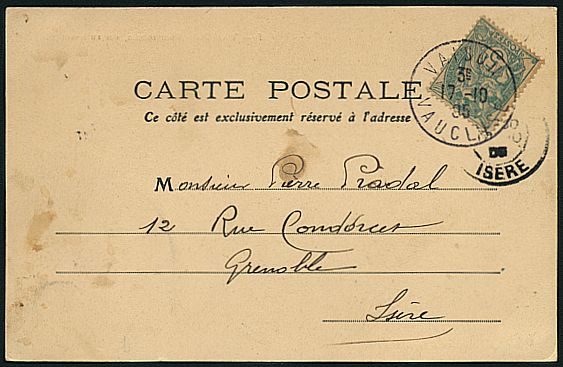 CARTE POSTALE
Ce côté est exclusivement réservé à l'adresse
3E
17-10
05
VAUCLUSE
ISÈRE
Monsieur Pierre Pradal
12 Rue Condorcet
Grenoble
Isère